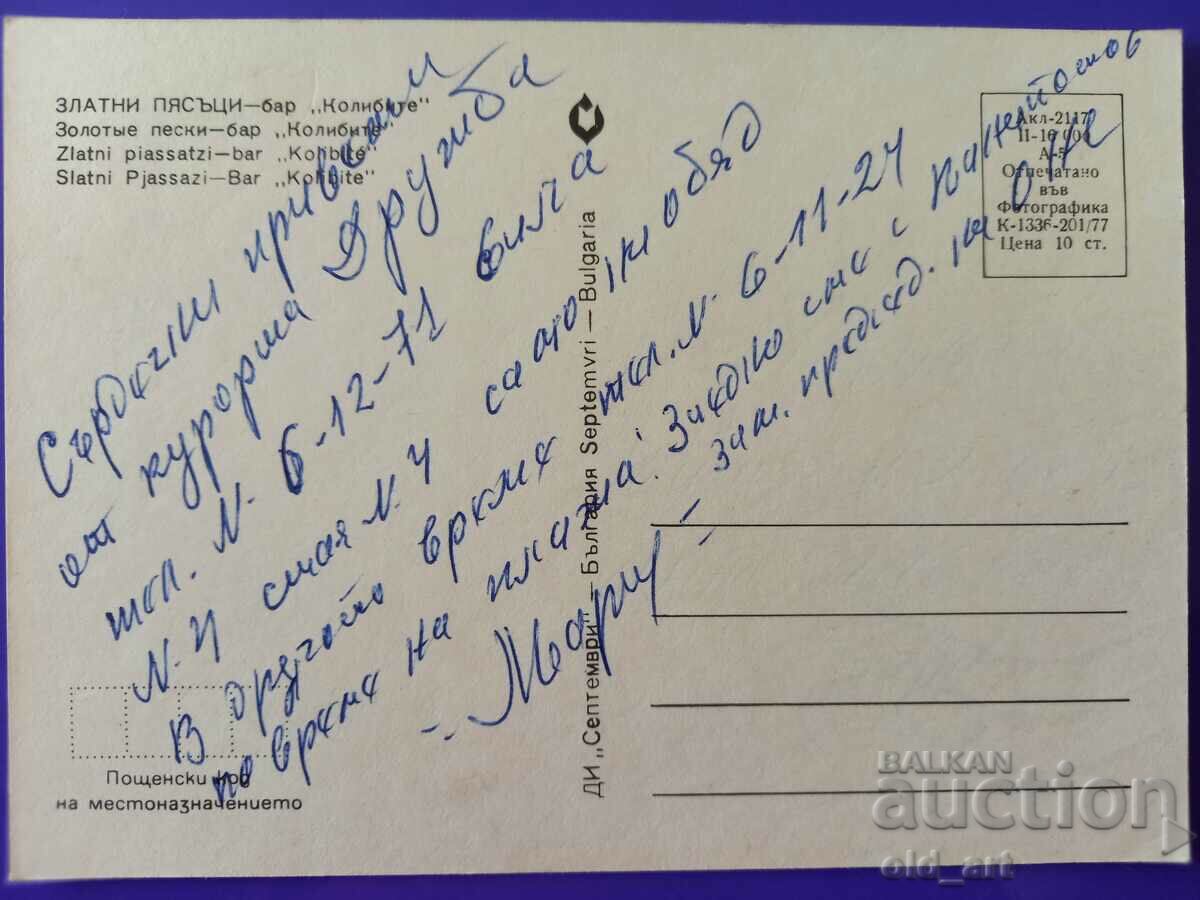 ЗЛАТНИ ПЯСЪЦИ—бар „Колибите"
Золотые пески—бар „Колибите"
Zlatni piassatzi—bar „Kolibite"
Slatni Pjassazi—Bar „Kolibite"
Акл-2117
II-10 000
А-5
Отпечатано
във
Фотографика
К-1336-201/77
Цена 10 ст.
Сърдечни
от курорта Дружба
тел. N. 6-12-71 вила
N. 4 стая N. 4 само на обяд
В другото време тел. N. 6-11-24
по време на плажа. Заедно сме с
зам. председ. на
Мари
ДИ „Септември" — България Septemvri — Bulgaria
Пощенски код
на местоназначението
BALKAN
auction
old_art